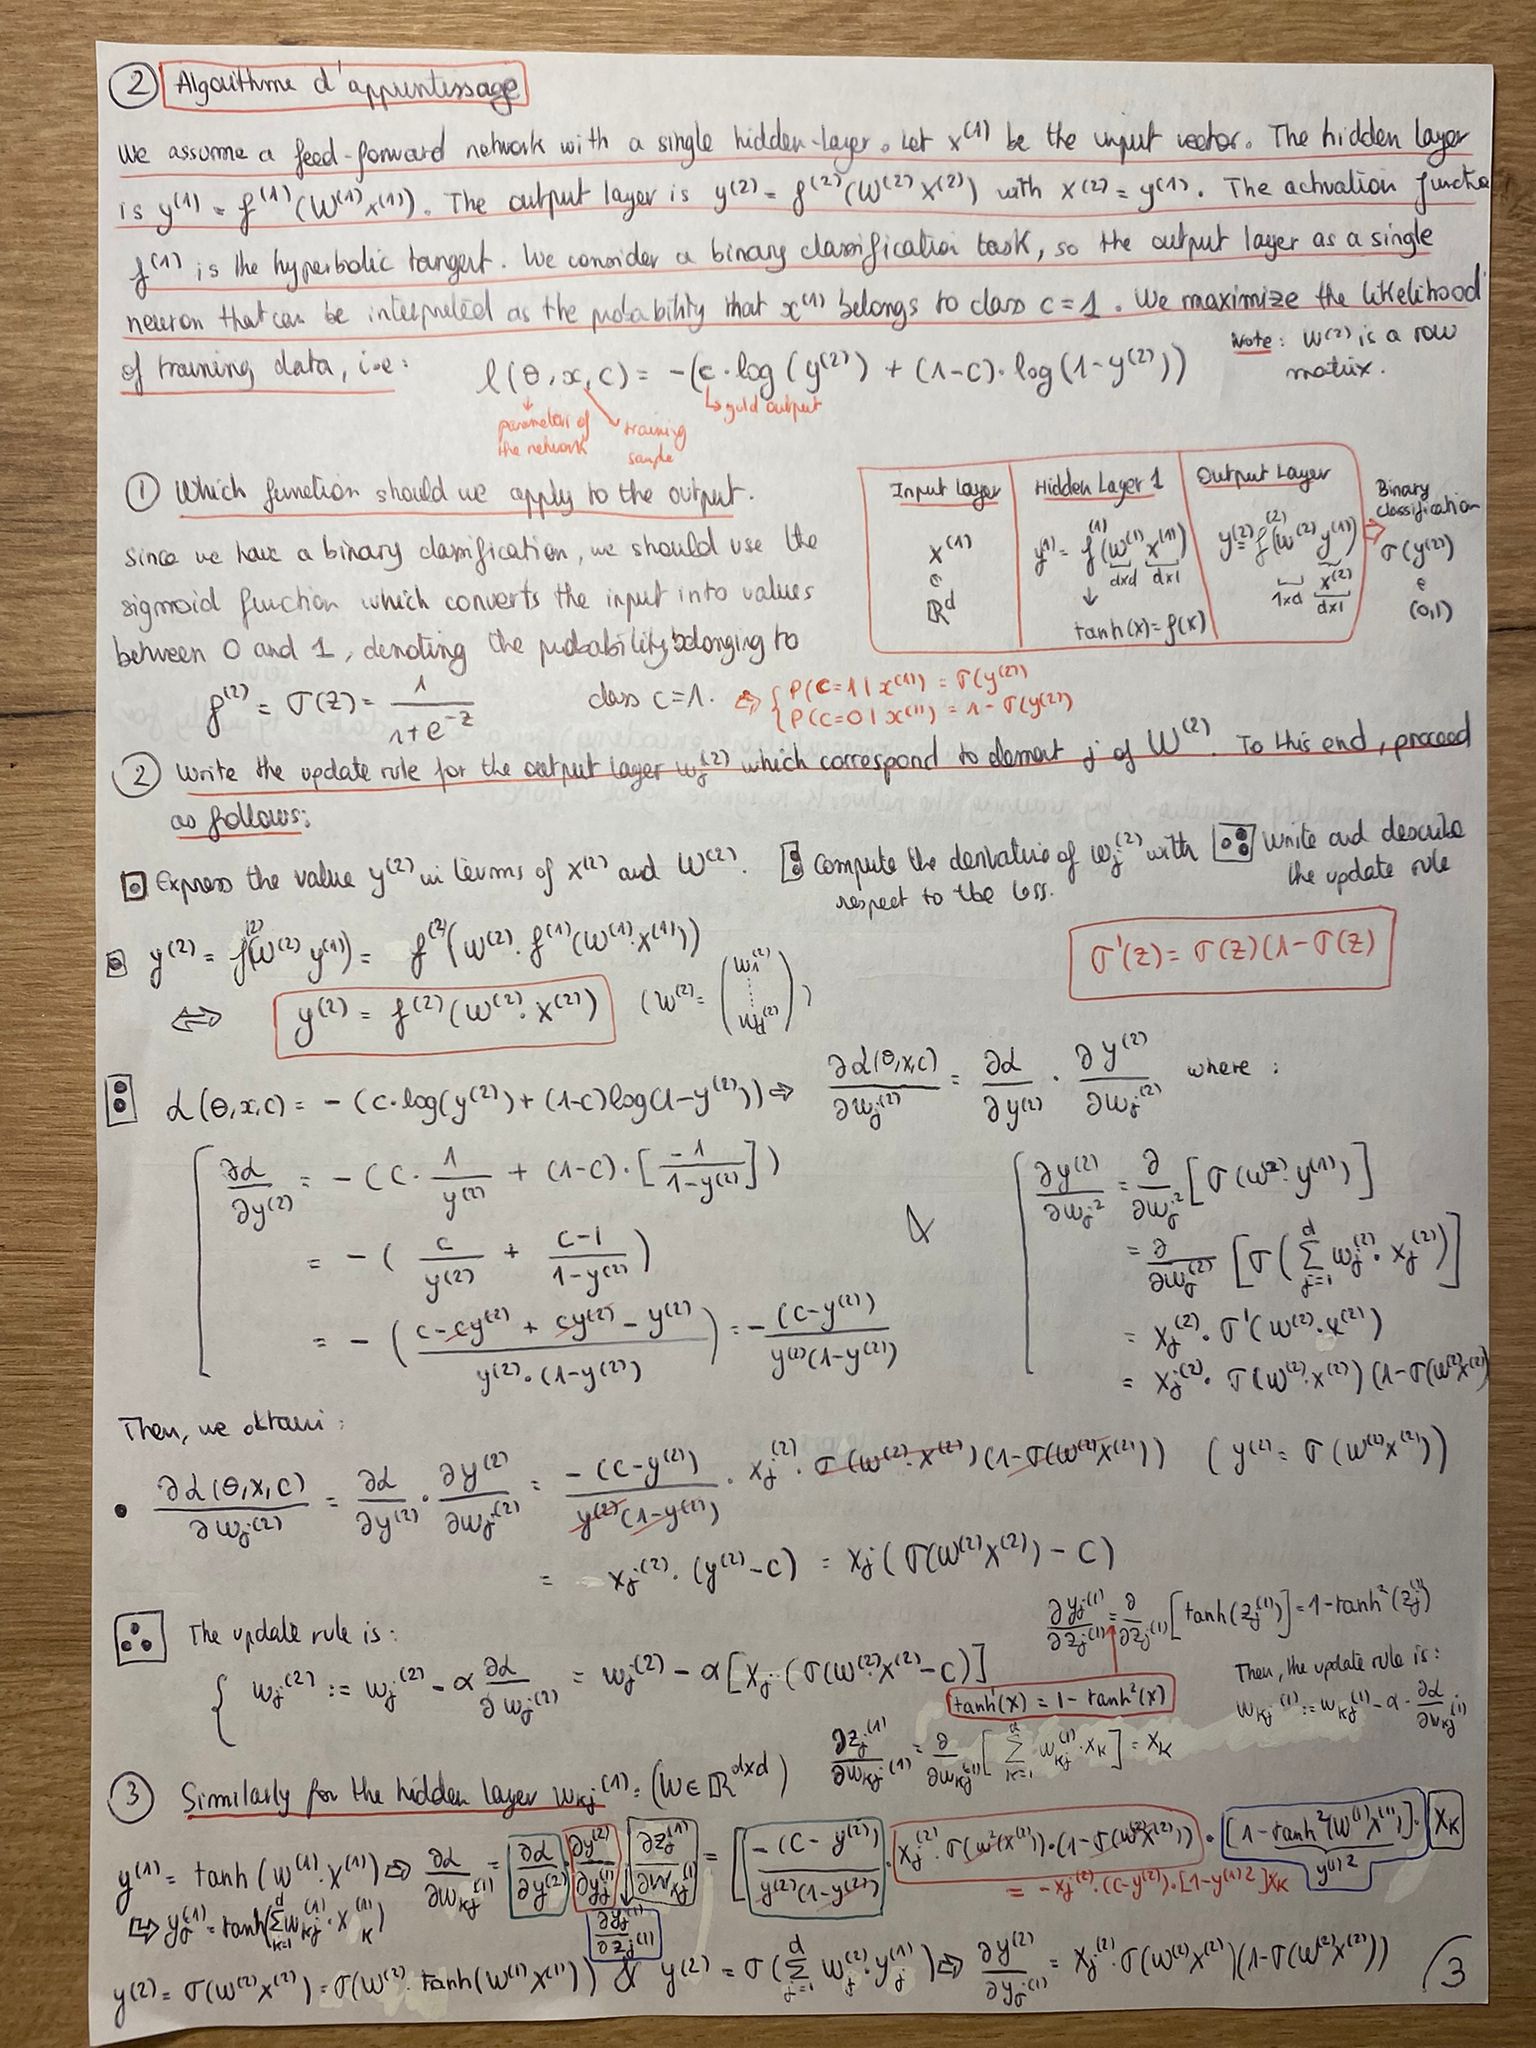 ② Algorithme d'apprentissage
We assume a feed-forward network with a single hidden-layer. Let x⁽¹⁾ be the input vector. The hidden layer
is y⁽¹⁾ = f⁽¹⁾(W⁽¹⁾x⁽¹⁾). The output layer is y⁽²⁾ = f⁽²⁾(W⁽²⁾x⁽²⁾) with x⁽²⁾ = y⁽¹⁾. The activation functio
f⁽¹⁾ is the hyperbolic tangent. We consider a binary classification task, so the output layer as a single
neuron that can be interpreted as the probability that x⁽¹⁾ belongs to class c = 1. We maximize the likelihood
of training data, i.e: l(θ, x, c) = -(c·log(y⁽²⁾) + (1-c)·log(1-y⁽²⁾))
Note: W⁽²⁾ is a row
matrix.
parameters of
the network
training
sample
↳ gold output
① Which function should we apply to the output.
Since we have a binary classification, we should use the
sigmoid function which converts the input into values
between 0 and 1, denoting the probability belonging to
class c=1. ⇔ { P(c=1 | x⁽¹⁾) = σ(y⁽²⁾)
P(c=0 | x⁽¹⁾) = 1 - σ(y⁽²⁾)
f⁽²⁾ = σ(z) = 1/(1+e^-z)
Input layer
x⁽¹⁾
∈
ℝᵈ
Hidden Layer 1
y⁽¹⁾ = f⁽¹⁾(W⁽¹⁾ x⁽¹⁾)
dxd dx1
↓
tanh(x) = f(x)
Output Layer
y⁽²⁾ = f⁽²⁾(W⁽²⁾ y⁽¹⁾)
1xd x⁽²⁾
dx1
Binary
classification
σ(y⁽²⁾)
∈
(0,1)
② Write the update rule for the output layer wj⁽²⁾ which correspond to element j of W⁽²⁾. To this end, proceed
as follows:
⚀ Express the value y⁽²⁾ in terms of x⁽²⁾ and W⁽²⁾.
⚁ Compute the derivative of wj⁽²⁾ with
respect to the loss.
⚂ Write and describe
the update rule
⚀ y⁽²⁾ = f⁽²⁾(W⁽²⁾ y⁽¹⁾) = f⁽²⁾(W⁽²⁾. f⁽¹⁾(W⁽¹⁾.x⁽¹⁾))
σ'(z) = σ(z)(1-σ(z)
⇔ y⁽²⁾ = f⁽²⁾(W⁽²⁾. x⁽²⁾) (W⁽²⁾ = (w1⁽²⁾ ...... wd⁽²⁾))
⚁ L(θ,x,c) = -(c·log(y⁽²⁾) + (1-c)log(1-y⁽²⁾)) ⇒ ∂L(θ,x,c)/∂wj⁽²⁾ = ∂L/∂y⁽²⁾ · ∂y⁽²⁾/∂wj⁽²⁾ where :
∂L/∂y⁽²⁾ = -(c · 1/y⁽²⁾ + (1-c)·[-1/(1-y⁽²⁾)])
= -( c/y⁽²⁾ + (c-1)/(1-y⁽²⁾) )
= -( (c-cy⁽²⁾ + cy⁽²⁾ - y⁽²⁾)/(y⁽²⁾·(1-y⁽²⁾)) ) = -(c-y⁽²⁾)/(y⁽²⁾(1-y⁽²⁾))
&
∂y⁽²⁾/∂wj² = ∂/∂wj² [σ(W⁽²⁾. y⁽¹⁾)]
= ∂/∂wj⁽²⁾ [σ(Σ_{j=1}^d wj⁽²⁾. xj⁽²⁾)]
= xj⁽²⁾. σ'(W⁽²⁾.x⁽²⁾)
= xj⁽²⁾. σ(W⁽²⁾.x⁽²⁾)(1-σ(W⁽²⁾x⁽²⁾)
Then, we obtain :
• ∂L(θ,x,c)/∂wj⁽²⁾ = ∂L/∂y⁽²⁾ · ∂y⁽²⁾/∂wj⁽²⁾ = -(c-y⁽²⁾)/(y⁽²⁾(1-y⁽²⁾)) · xj⁽²⁾. σ(W⁽²⁾.x⁽²⁾)(1-σ(W⁽²⁾x⁽²⁾)) (y⁽²⁾ = σ(W⁽²⁾x⁽²⁾))
= xj⁽²⁾. (y⁽²⁾-c) = xj(σ(W⁽²⁾x⁽²⁾) - c)
⚂ The update rule is :
{ wj⁽²⁾ := wj⁽²⁾ - α ∂L/∂wj⁽²⁾ = wj⁽²⁾ - α[xj·(σ(W⁽²⁾.x⁽²⁾-c)]
∂yj⁽¹⁾/∂zj⁽¹⁾ = ∂/∂zj⁽¹⁾ [tanh(zj⁽¹⁾)] = 1-tanh²(zj⁽¹⁾)
tanh'(x) = 1 - tanh²(x)
Then, the update rule is :
wkj⁽¹⁾ := wkj⁽¹⁾ - α · ∂L/∂wkj⁽¹⁾
∂zj⁽¹⁾/∂wkj⁽¹⁾ = ∂/∂wkj⁽¹⁾ [Σ_{k=1}^d wkj⁽¹⁾. xk] = xk
③ Similarly for the hidden layer wkj⁽¹⁾. (W ∈ ℝ^dxd)
y⁽¹⁾ = tanh(W⁽¹⁾. x⁽¹⁾) ⇒ ∂L/∂wkj⁽¹⁾ = ∂L/∂y⁽²⁾ · ∂y⁽²⁾/∂yj⁽¹⁾ · ∂zj⁽¹⁾/∂wkj⁽¹⁾ = [-(c-y⁽²⁾)/(y⁽²⁾(1-y⁽²⁾)) · xj⁽²⁾. σ(W²(x⁽²⁾)).(1-σ(W⁽²⁾x⁽²⁾)) · [1-tanh²(W⁽¹⁾x⁽¹⁾)]. xk
y⁽¹⁾²
∂yj⁽¹⁾/∂zj⁽¹⁾
= -xj⁽²⁾.(c-y⁽²⁾).[1-y⁽¹⁾²]xk
⇒ yj⁽¹⁾ = tanh(Σ_{k=1}^d wkj⁽¹⁾. xk⁽¹⁾)
y⁽²⁾ = σ(W⁽²⁾x⁽²⁾) = σ(W⁽²⁾. tanh(W⁽¹⁾x⁽¹⁾)) & y⁽²⁾ = σ(Σ_{j=1}^d wj⁽²⁾. yj⁽¹⁾) ⇒ ∂y⁽²⁾/∂yj⁽¹⁾ = xj⁽²⁾. σ(W⁽²⁾x⁽²⁾)(1-σ(W⁽²⁾x⁽²⁾))
/3